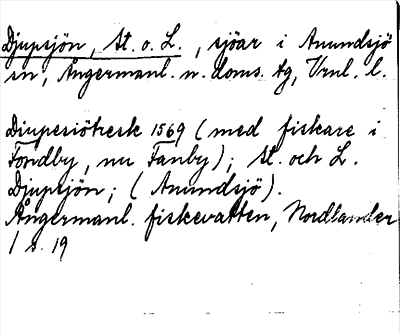 Djupsjön, St. o. L., sjöar i Anundsjö
sn, Ångermanl. n. doms. tg, Vrnl. l.
Diupesiötresk 1569 (med fiskare i
Fondby, nu Fanby); St. och L.
Djupsjön; (Anundsjö).
Ångermanl. fiskevatten, Nordlander
1 s. 19